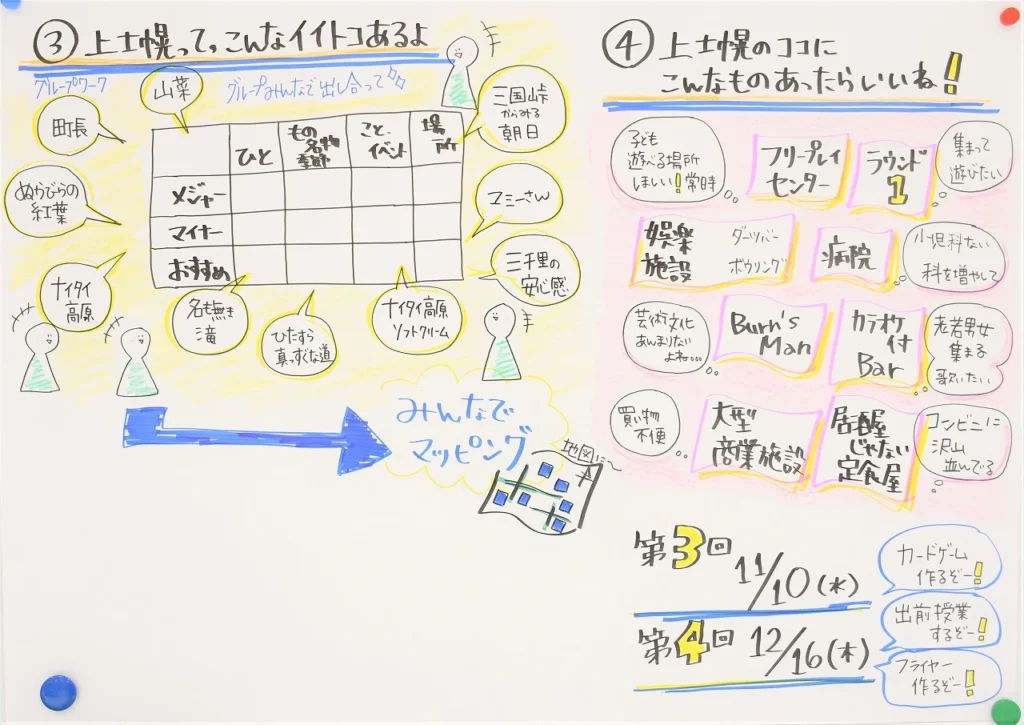 ③ 上士幌って、こんなイイトコあるよ
グループワーク
グループみんなで出し合って
町長
山菜
三国峠
からみる
朝日
ぬかびらの
紅葉
マミーさん
三千里の
安心感
ひと
もの
名物
季節
こと、
イベント
場
所
メジャー
マイナー
おすすめ
ナイタイ
高原
名も無き
滝
ひたすら
真っすぐな道
ナイタイ高原
ソフトクリーム
みんなで
マッピング
地図に〜
④ 上士幌のココに
こんなものあったらいいね!
子ども
遊べる場所
ほしい!常時
フリープレイ
センター
ラウンド
1
集まって
遊びたい
娯楽
施設
ダーツバー
ボウリング
病院
小児科ない
科を増やして
芸術文化
あんまりない
よね…
Burn's
Man
カラオケ
付
Bar
老若男女
集まる
歌いたい
買い物
不便
大型
商業施設
居酒屋
じゃない
定食屋
コンビニに
沢山
並んでる
第3回
11/10(水)
カードゲーム
作るぞー!
出前授業
するぞー!
第4回 12/16(木)
フライヤー
作るぞー!